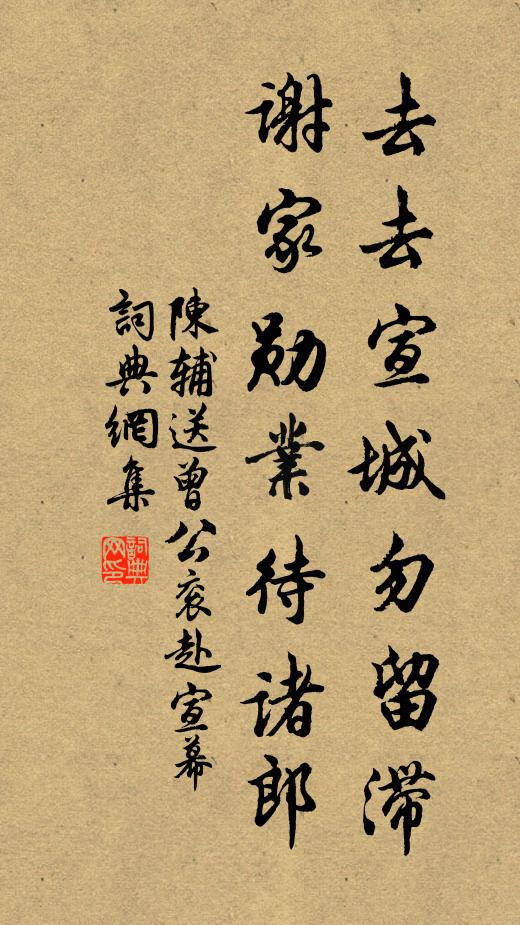 去去宣城勿留滞
謝家勛業待諸郎
陳輔送曾公衮赴宣幕
詞典網集
詞典網印